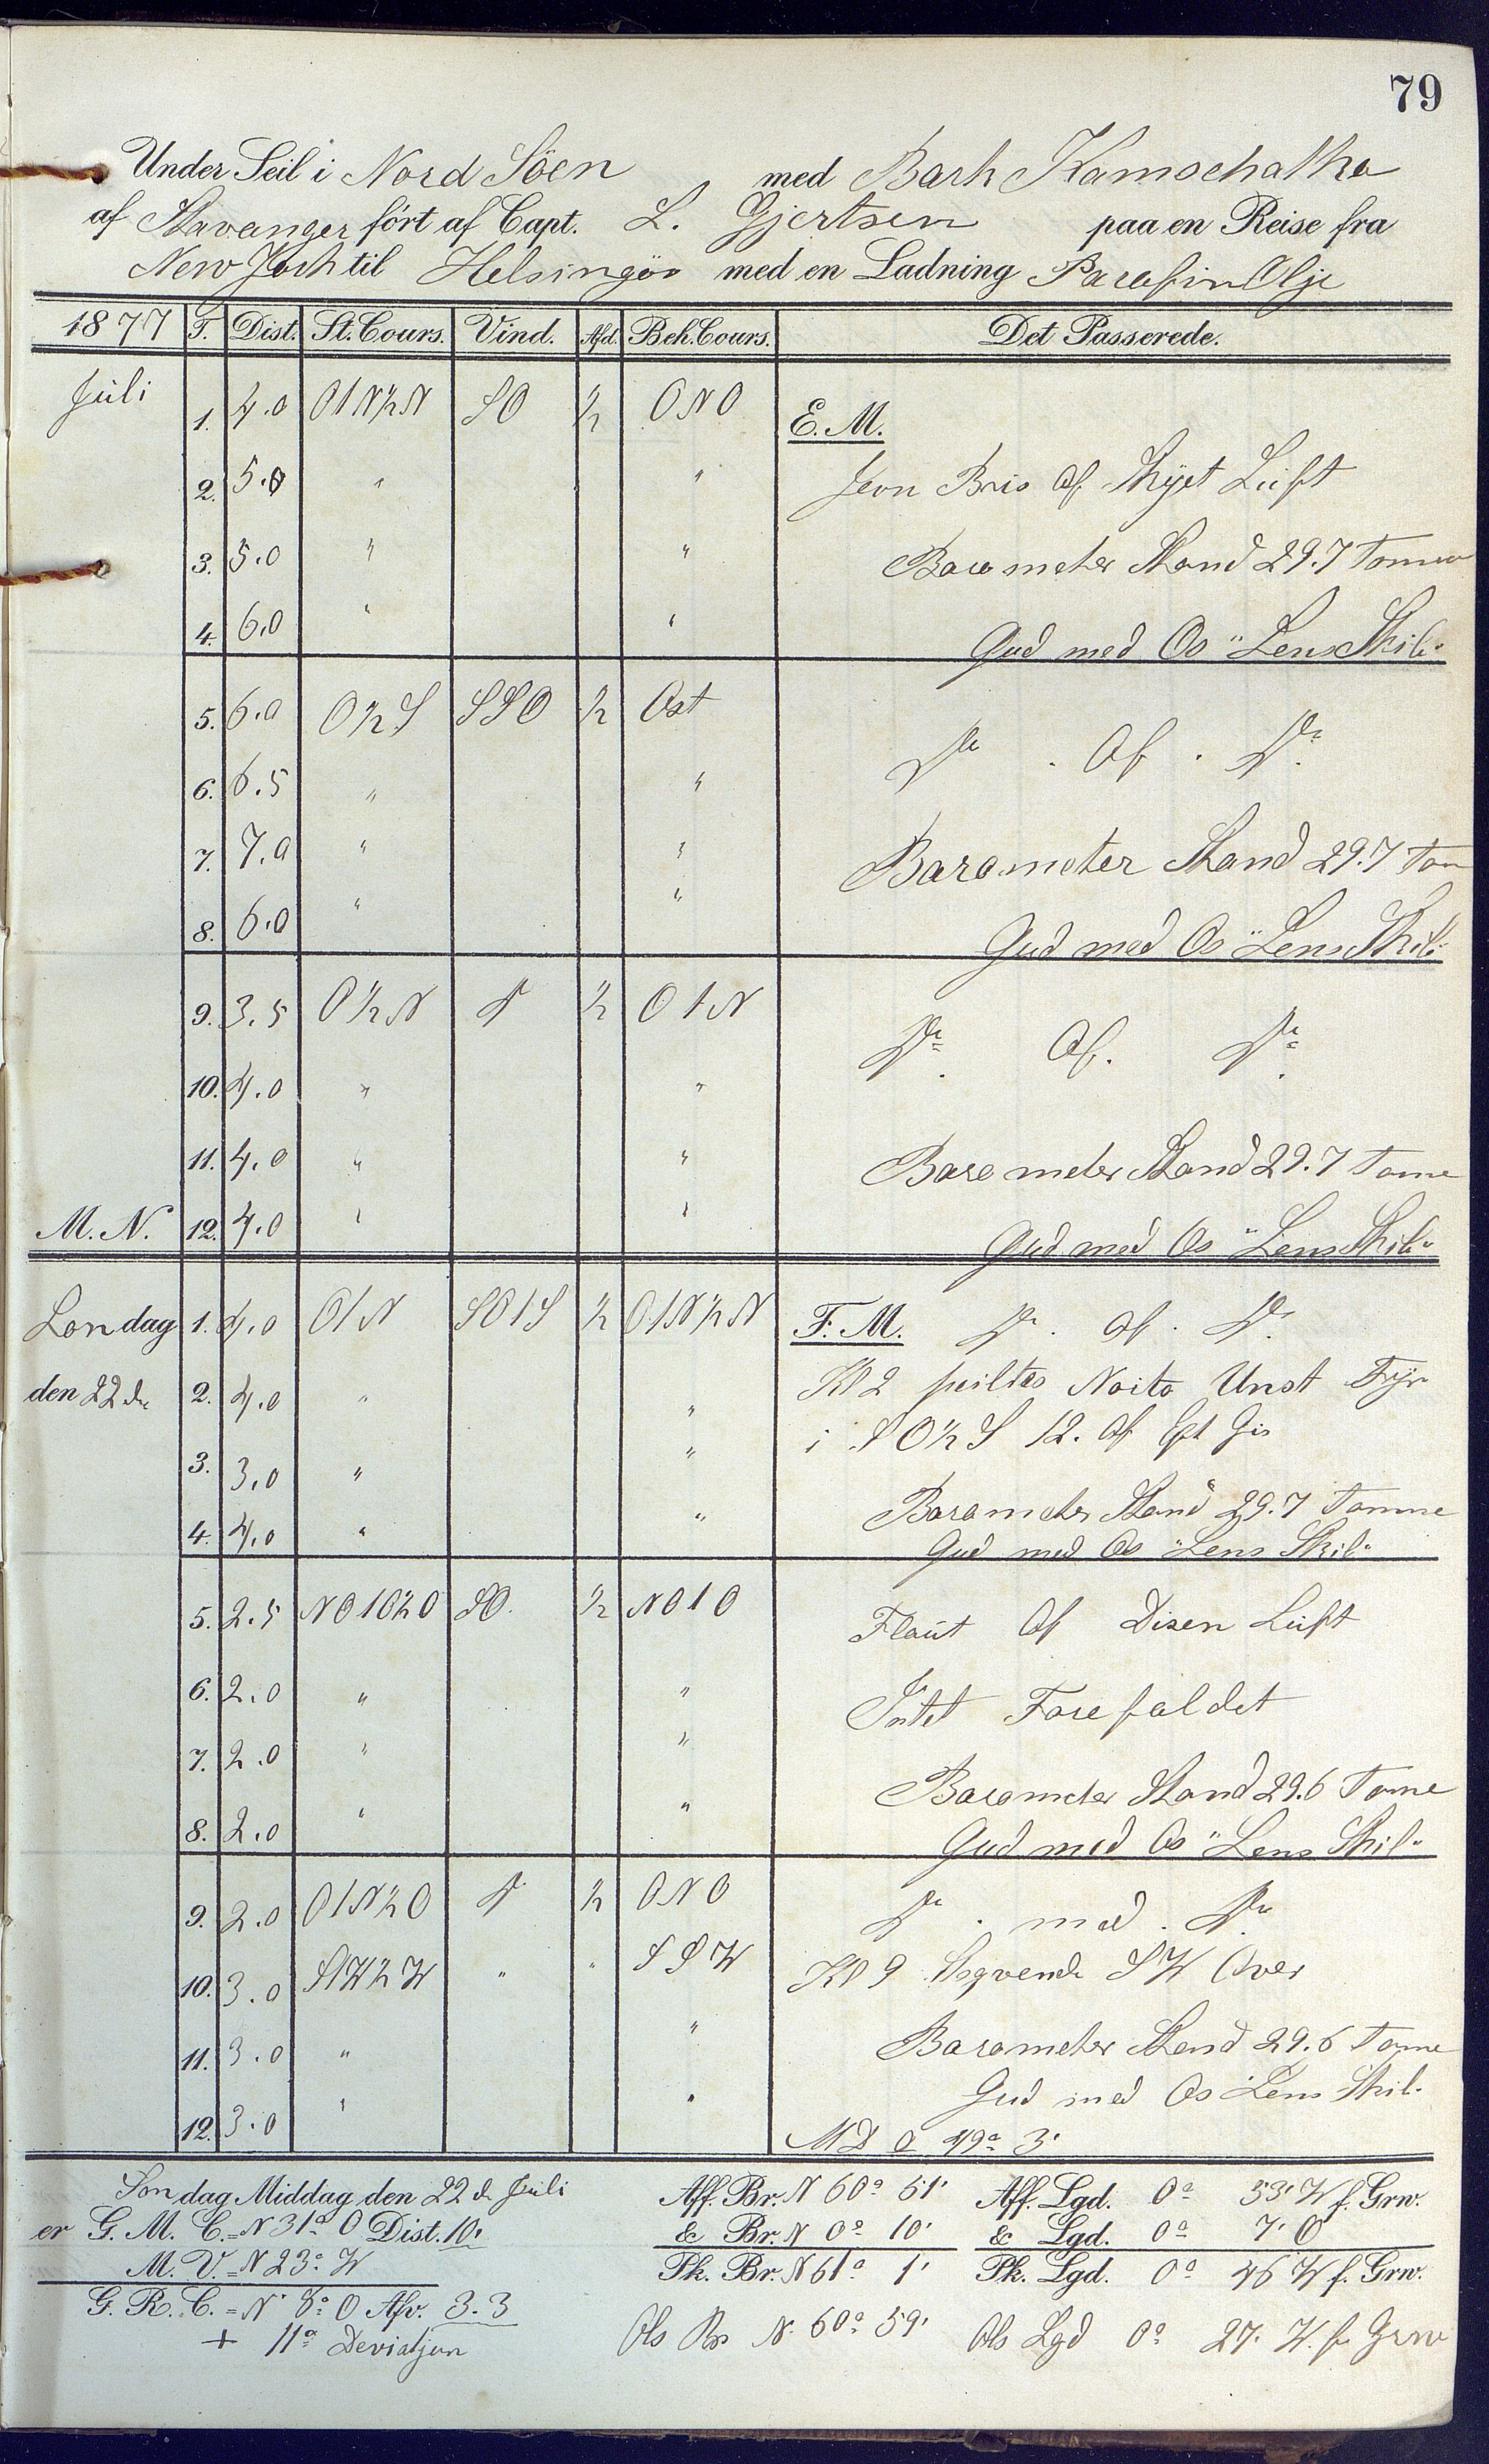 79
Under Seil i Nord Söen med Bark Kamschatka
af Stavanger fört af Capt. L. Gjertsen paa en Reise fra
New York til Helsingör med en Ladning Parafin Olje
1877 T. Dist. St. Cours. Vind. Afd. Beh. Cours. Det Passerede.
Juli 1. 4.0 O1N½N SO ½ ONO E. M.
2. 5.0 " " Jevn Bris Af Skyet Luft
3. 5.0 " " Barometer Stand 29.7 Tomme
4. 6.0 " " Gud med Os "Lens Skib"
5. 6.0 O½S SSO ½ Ost Do . Af . Do.
6. 6.5 " "
7. 7.0 " " Barometer Stand 29.7 Tom
8. 6.0 " " Gud med Os "Lens Skib"
9. 3.5 O½N Do ½ O1N Do. Af. Do.
10. 4.0 " "
11. 4.0 " " Barometer Stand 29.7 Tome
M. N. 12. 4.0 " " Gud med Os "Lens Skib"
Sondag 1. 4.0 O1N SO1S ½ O1N½N F. M. Do . Af . Do.
den 22de 2. 4.0 " " Kl 2 peiltes Unst Fyr
3. 3.0 " " i SO½S 12. Af Gis
4. 4.0 " " Barometer Stand 29.7 Tomme
Gud med Os "Lens Skib"
5. 2.5 NO1O½O SO. ½ NO1O Flaut Af Disen Luft
6. 2.0 " " Intet Forefaldet
7. 2.0 " "
8. 2.0 " " Barometer Stand 29.6 Tome
Gud med Os "Lens Skib"
9. 2.0 O1N½O Do ½ ONO Do . med . Do.
10. 3.0 SW½W " " SSW Kl 9 SW Over
11. 3.0 " " Barometer Stand 29.6 Tome
12. 3.0 " " Gud med Os "Lens Skib"
MD a 49° 3'
Sondag Middag den 22de Juli Aff. Br. N 60° 51' Aff. Lgd. 0° 53' W f. Grw.
er G. M. C. = N 31° O Dist. 10' & Br. N 0° 10' & Lgd. 0° 7' O
M. V. = N 23° W Pk. Br. N 61° 1' Pk. Lgd. 0° 46' W f. Grw.
G. R. C. = N 8° O Afv. 3.3
+ 11° Deviatjon Obs Br N. 60° 59' Obs Lgd 0° 27' W. f Grw